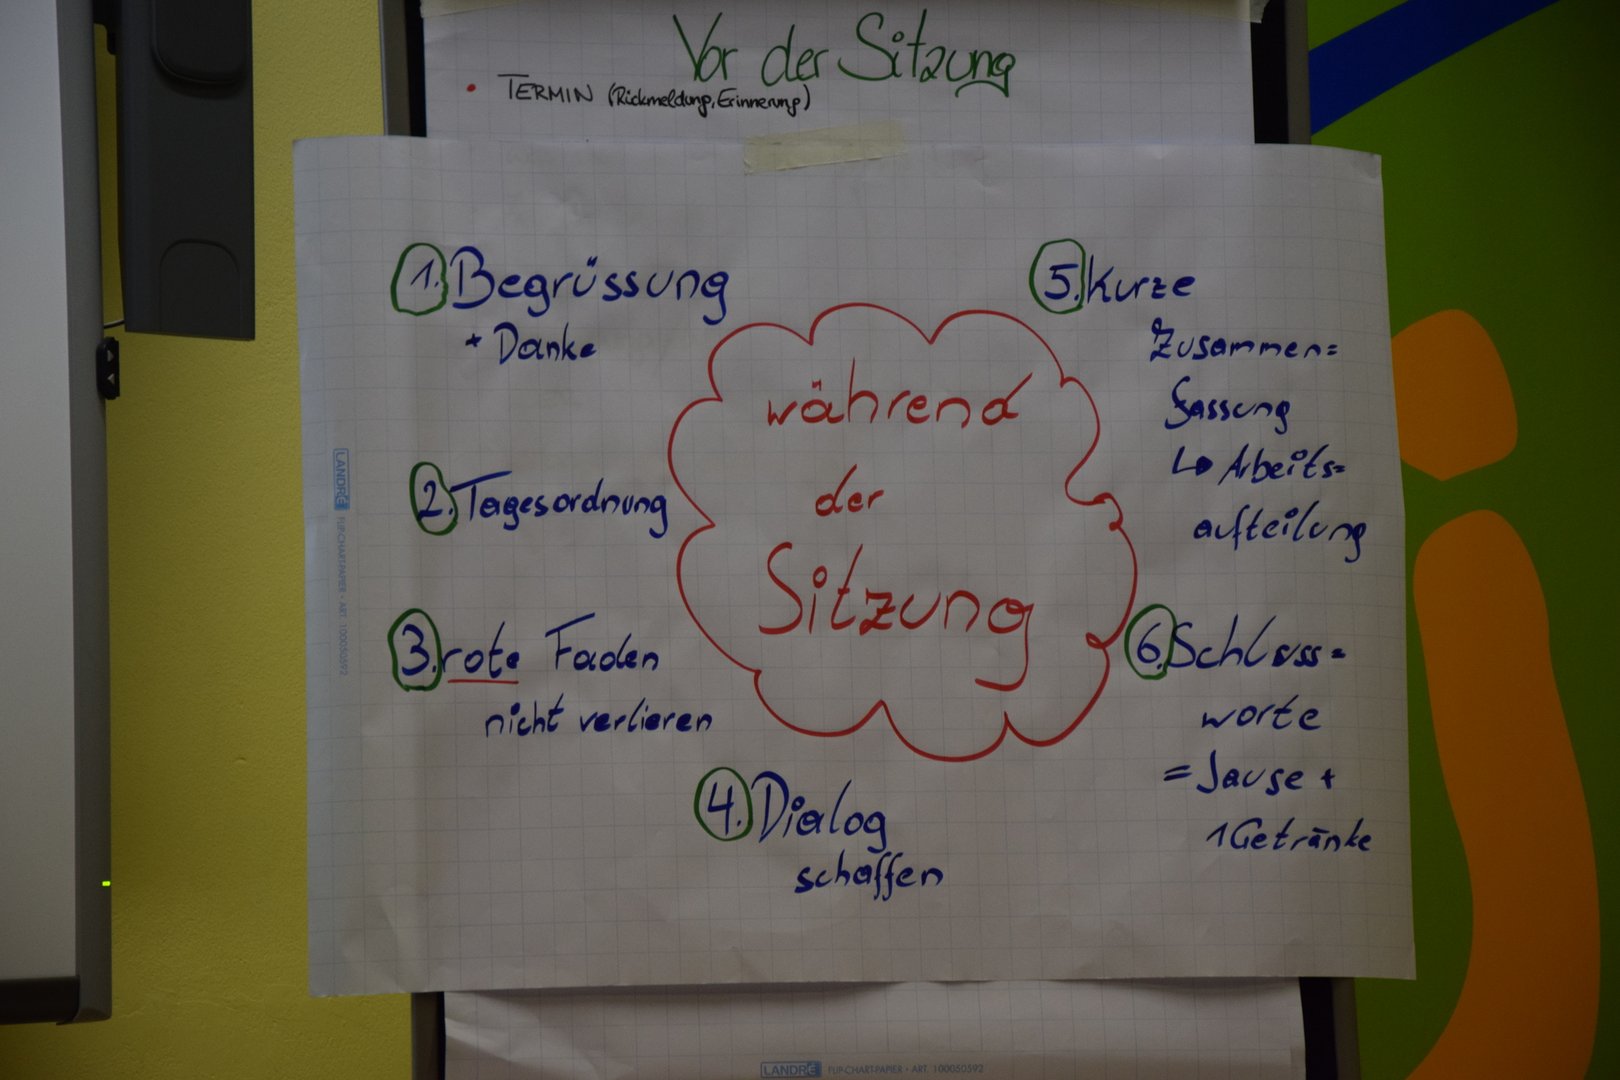 Vor der Sitzung
• TERMIN (Rückmeldung, Erinnerung)
1. Begrüssung
+ Danke
2. Tagesordnung
3. rote Faden
nicht verlieren
während
der
Sitzung
4. Dialog
schaffen
5. Kurze
Zusammen=
fassung
↳ Arbeits=
aufteilung
6. Schluss=
worte
= Jause +
1 Getränke
LANDRÉ FLIP-CHART-PAPIER • ART. 100050592
LANDRÉ FLIP-CHART-PAPIER • ART. 100050592